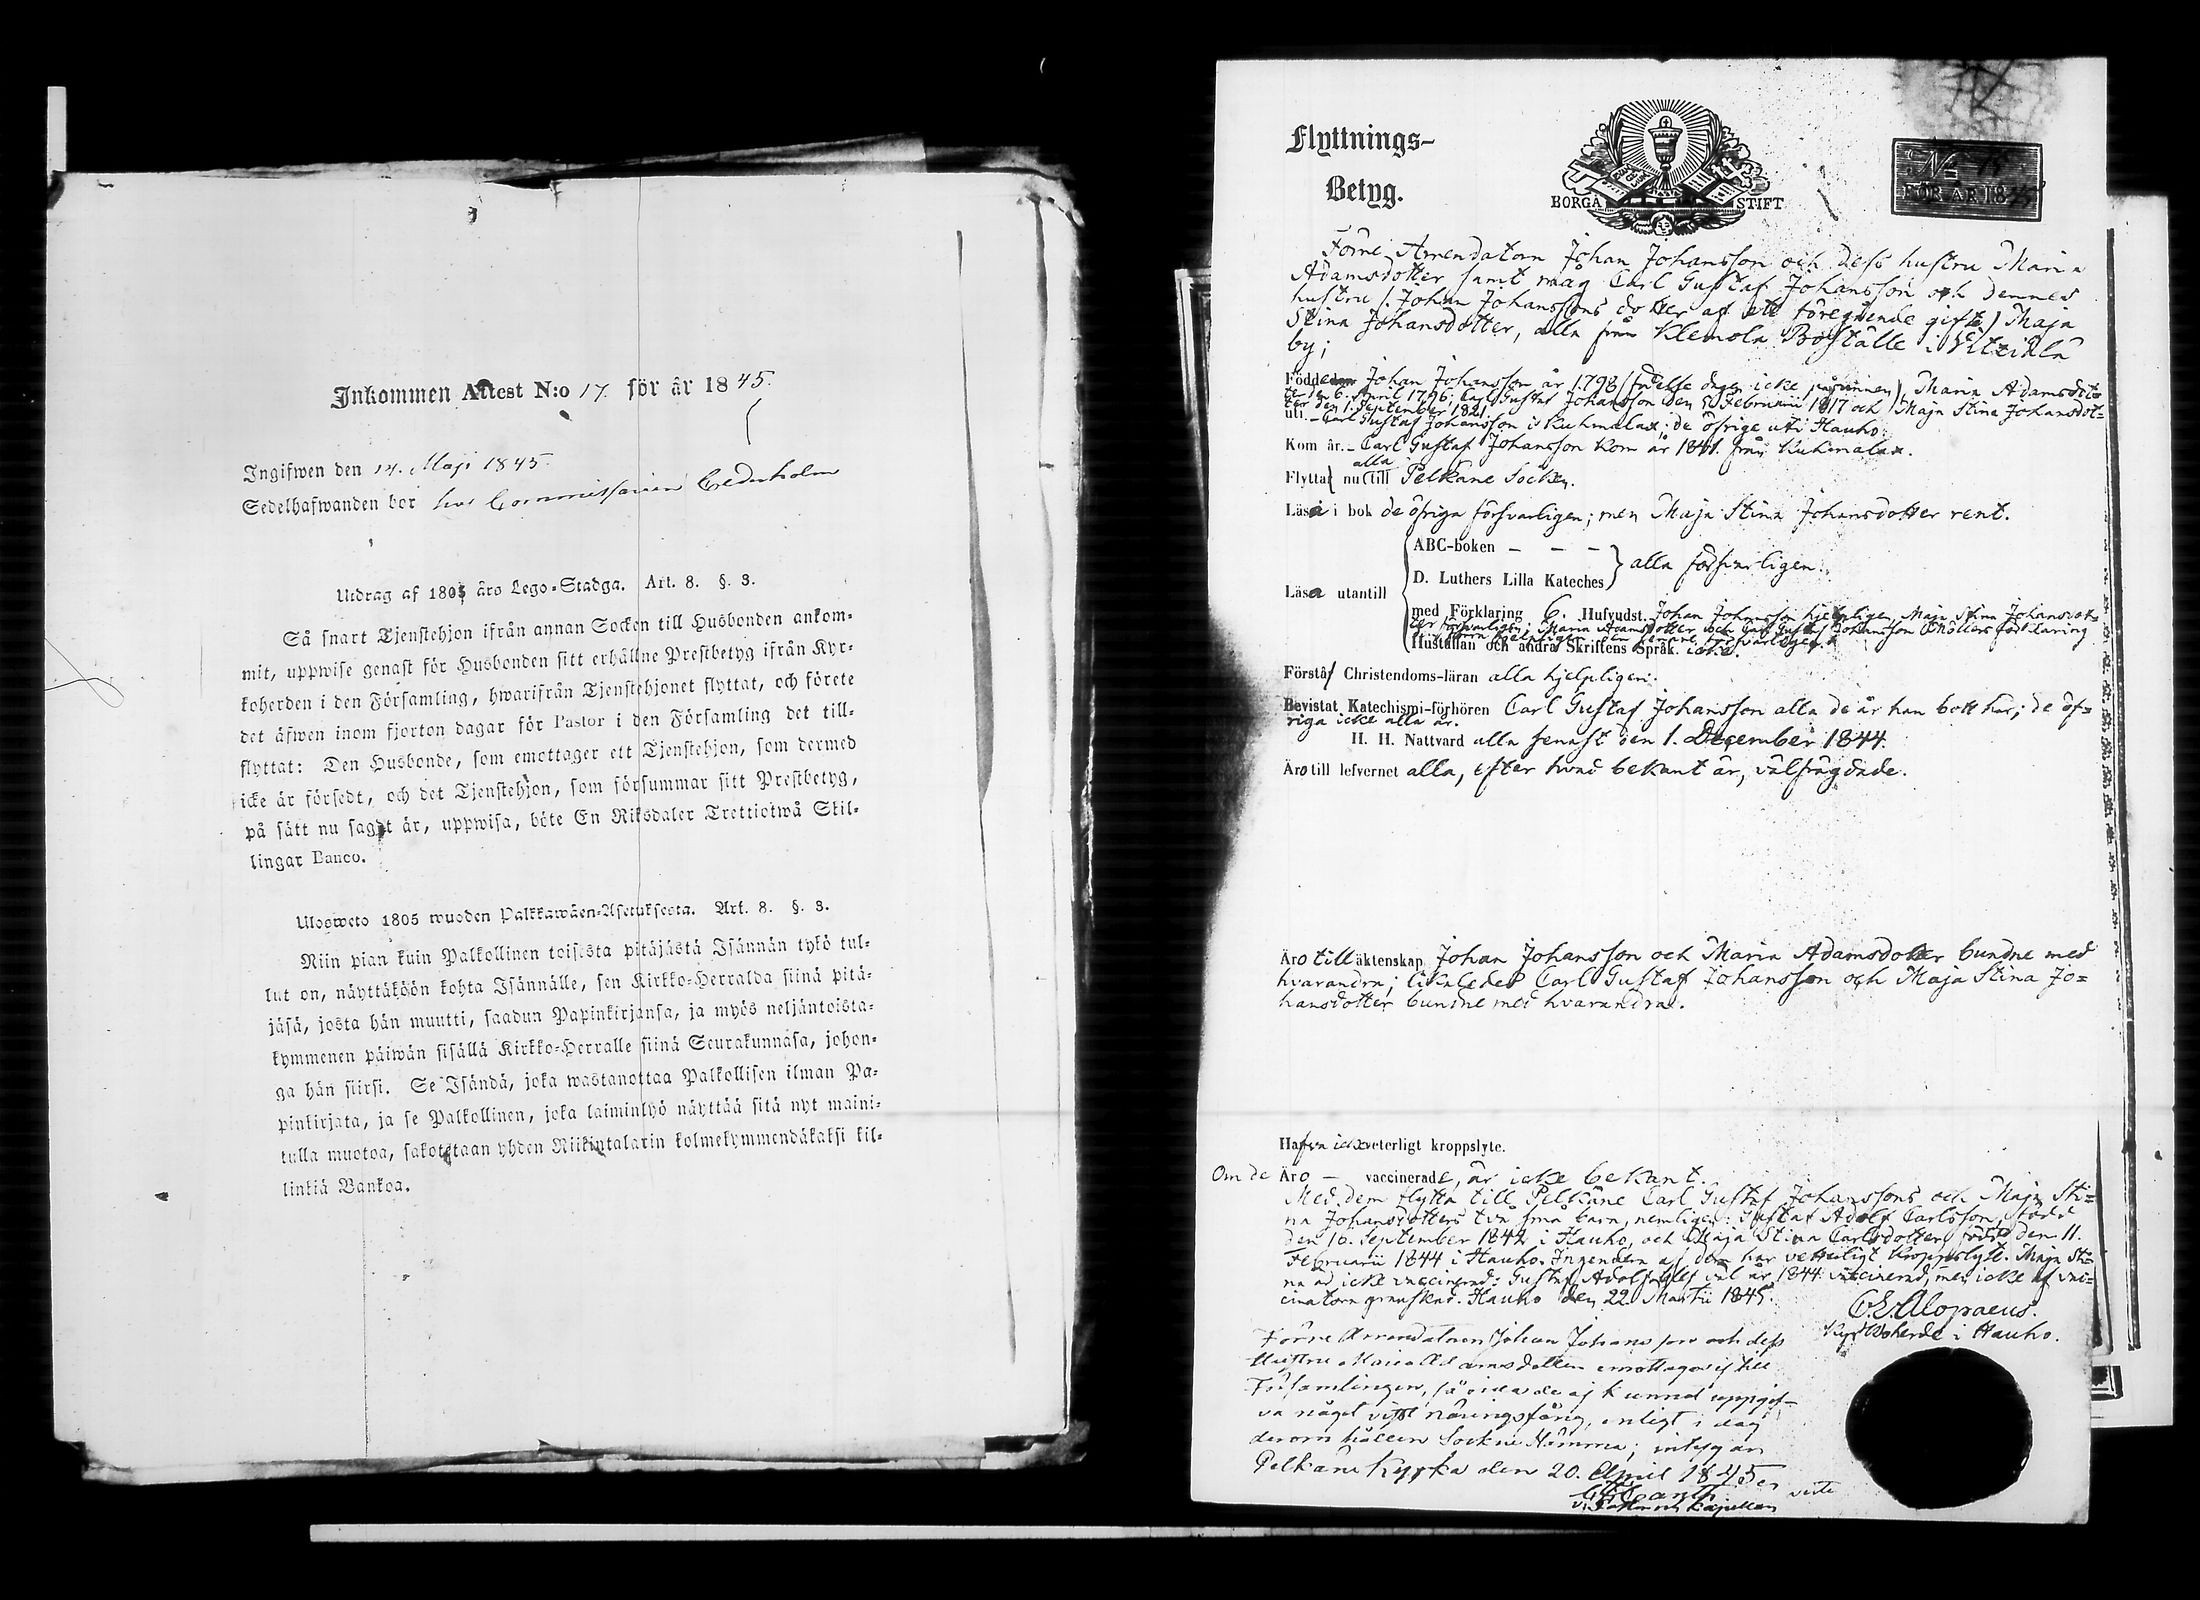 Inkommen Attest N:o 17. för år 1845.
Ingifwen den 14. Maji 1845.
Sedelhafwanden bor hos Commissarien Cederholm
Utdrag af 1805 års Lego-Stadga. Art. 8. §. 3.
Så snart Tjenstehjon ifrån annan Socken till Husbonden ankom-
mit, uppwise genast för Husbonden sitt erhållne Prestbetyg ifrån Kyr-
koherden i den Församling, hwarifrån Tjenstehjonet flyttat, och förete
det äfwen inom fjorton dagar för Pastor i den Församling det till-
flyttat: Den Husbonde, som emottager ett Tjenstehjon, som dermed
icke är försedt, och det Tjenstehjon, som försummar sitt Prestbetyg,
på sätt nu sagdt är, uppwisa, böte En Riksdaler Trettiotwå Skil-
lingar Banco.
Ulosweto 1805 wuoden Palkkawäen-Asetuksesta. Art. 8. §. 3.
Niin pian kuin Palkollinen toisesta pitäjästä Isännän tykö tul-
lut on, näyttäköön kohta Isännälle, sen Kirkko-Herralda siinä pitä-
jäsä, josta hän muutti, saadun Papinkirjansa, ja myös neljäntoista-
kymmenen päiwän sisällä Kirkko-Herralle siinä Seurakunnasa, johon-
ga hän siirsi. Se Isändä, joka wastanottaa Palkollisen ilman Pa-
pinkirjata, ja se Palkollinen, joka laiminlyö näyttää sitä nyt maini-
tulla muotoa, sakotetaan yhden Riikintalarin kolmekymmendäkaksi kil-
linkiä Bankoa.
Flyttnings-
Betyg.
BORGÅ STIFT
N:o 15
FÖR ÅR 1845
Förre Arrendatorn Johan Johansson och dess hustru Maria
Adamsdotter samt måg Carl Gustaf Johansson och dennes
hustru (Johan Johanssons dotter af ett föregående gifte) Maja
Stina Johansdotter, alla från Klemola Boställe i
by;
Födde Johan Johansson år 1798 (födelse dagen icke påfunnen), Maria Adamsdot-
ter den 6. April 1796; Carl Gustaf Johansson den 5 Februarii 1817 och Maja Stina Johansdot-
ter den 1. September 1821.
uti Carl Gustaf Johansson i Kuhmalax; de öfrige uti Hauho.
Kom år. Carl Gustaf Johansson kom år 1841 från Kuhmalax.
Flytta alla nu till Pelkäne Socken.
Läsa i bok de öfriga försvarligen; men Maja Stina Johansdotter rent.
Läsa utantill
ABC-boken - - -
D. Luthers Lilla Kateches
alla försvarligen.
med Förklaring 6. Hufvudst. Johan Johansson hjelpligen, Maja Stina Johansdot-
ter försvarligen; Maria Adamsdotter och Carl Gustaf Johansson Möllers förklaring
Hustaflan och andra Skriftens Språk icke.
Förstå Christendoms-läran alla hjelpligen.
Bevistat Katechismi-förhören Carl Gustaf Johansson alla de år han bott här; de öf-
riga icke alla år.
H. H. Nattvard alla senast den 1. December 1844.
Äro till lefvernet alla, efter hvad bekant är, välfrägdade.
Äro till äktenskap Johan Johansson och Maria Adamsdotter bundne med
hvarandra; likaledes Carl Gustaf Johansson och Maja Stina Jo-
hansdotter bundne med hvarandra.
Hafva icke veterligt kroppslyte.
Om de Äro - vaccinerade, är icke bekant.
Med dem flytta till Pelkäne Carl Gustaf Johanssons och Maja Sti-
na Johansdotters två små barn, nemligen: Gustaf Adolf Carlsson, född
den 16. September 1842 i Hauho, och Maja Stina Carlsdotter, född den 11.
Februarii 1844 i Hauho. Ingendera af dem har veterligt kroppslyte. Maja Sti-
na är icke vaccinerad; Gustaf Adolf blef väl år 1844 vaccinerad, men icke af vac-
cinatorn granskad. Hauho den 22. Martii 1845.
C. E. Alopaeus.
Kyrkoherde i Hauho.
Förre Arrendatoren Johan Johansson och dess
Hustru Maria Adamsdotter emottagas ej till
Församlingen, så vida de ej kunnat uppgif-
va något visst näringsfång, enligt i dag
derom hållen Sockne Stämma; intygar
Pelkäne Kyrka den 20. April 1845